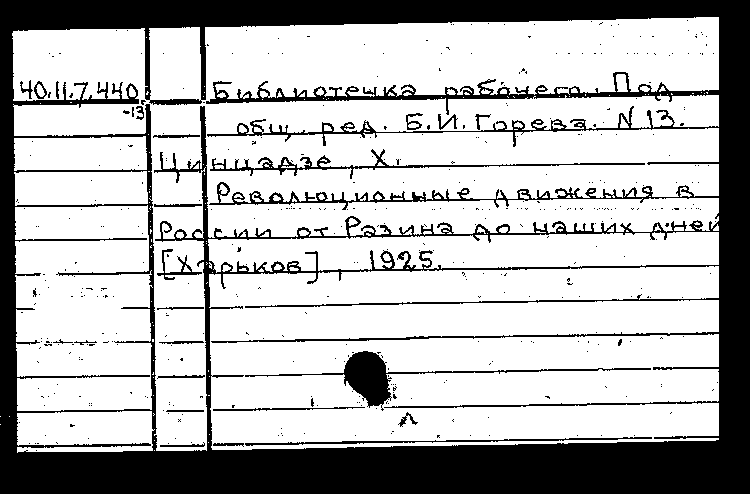 40.11.7.440 Библиотечка рабочего. Под
-13 общ. ред. Б.И.Горева. N 13.
Цинцадзе, Х.
Революционные движения в
России от Разина до наших дней
[Харьков], 1925.